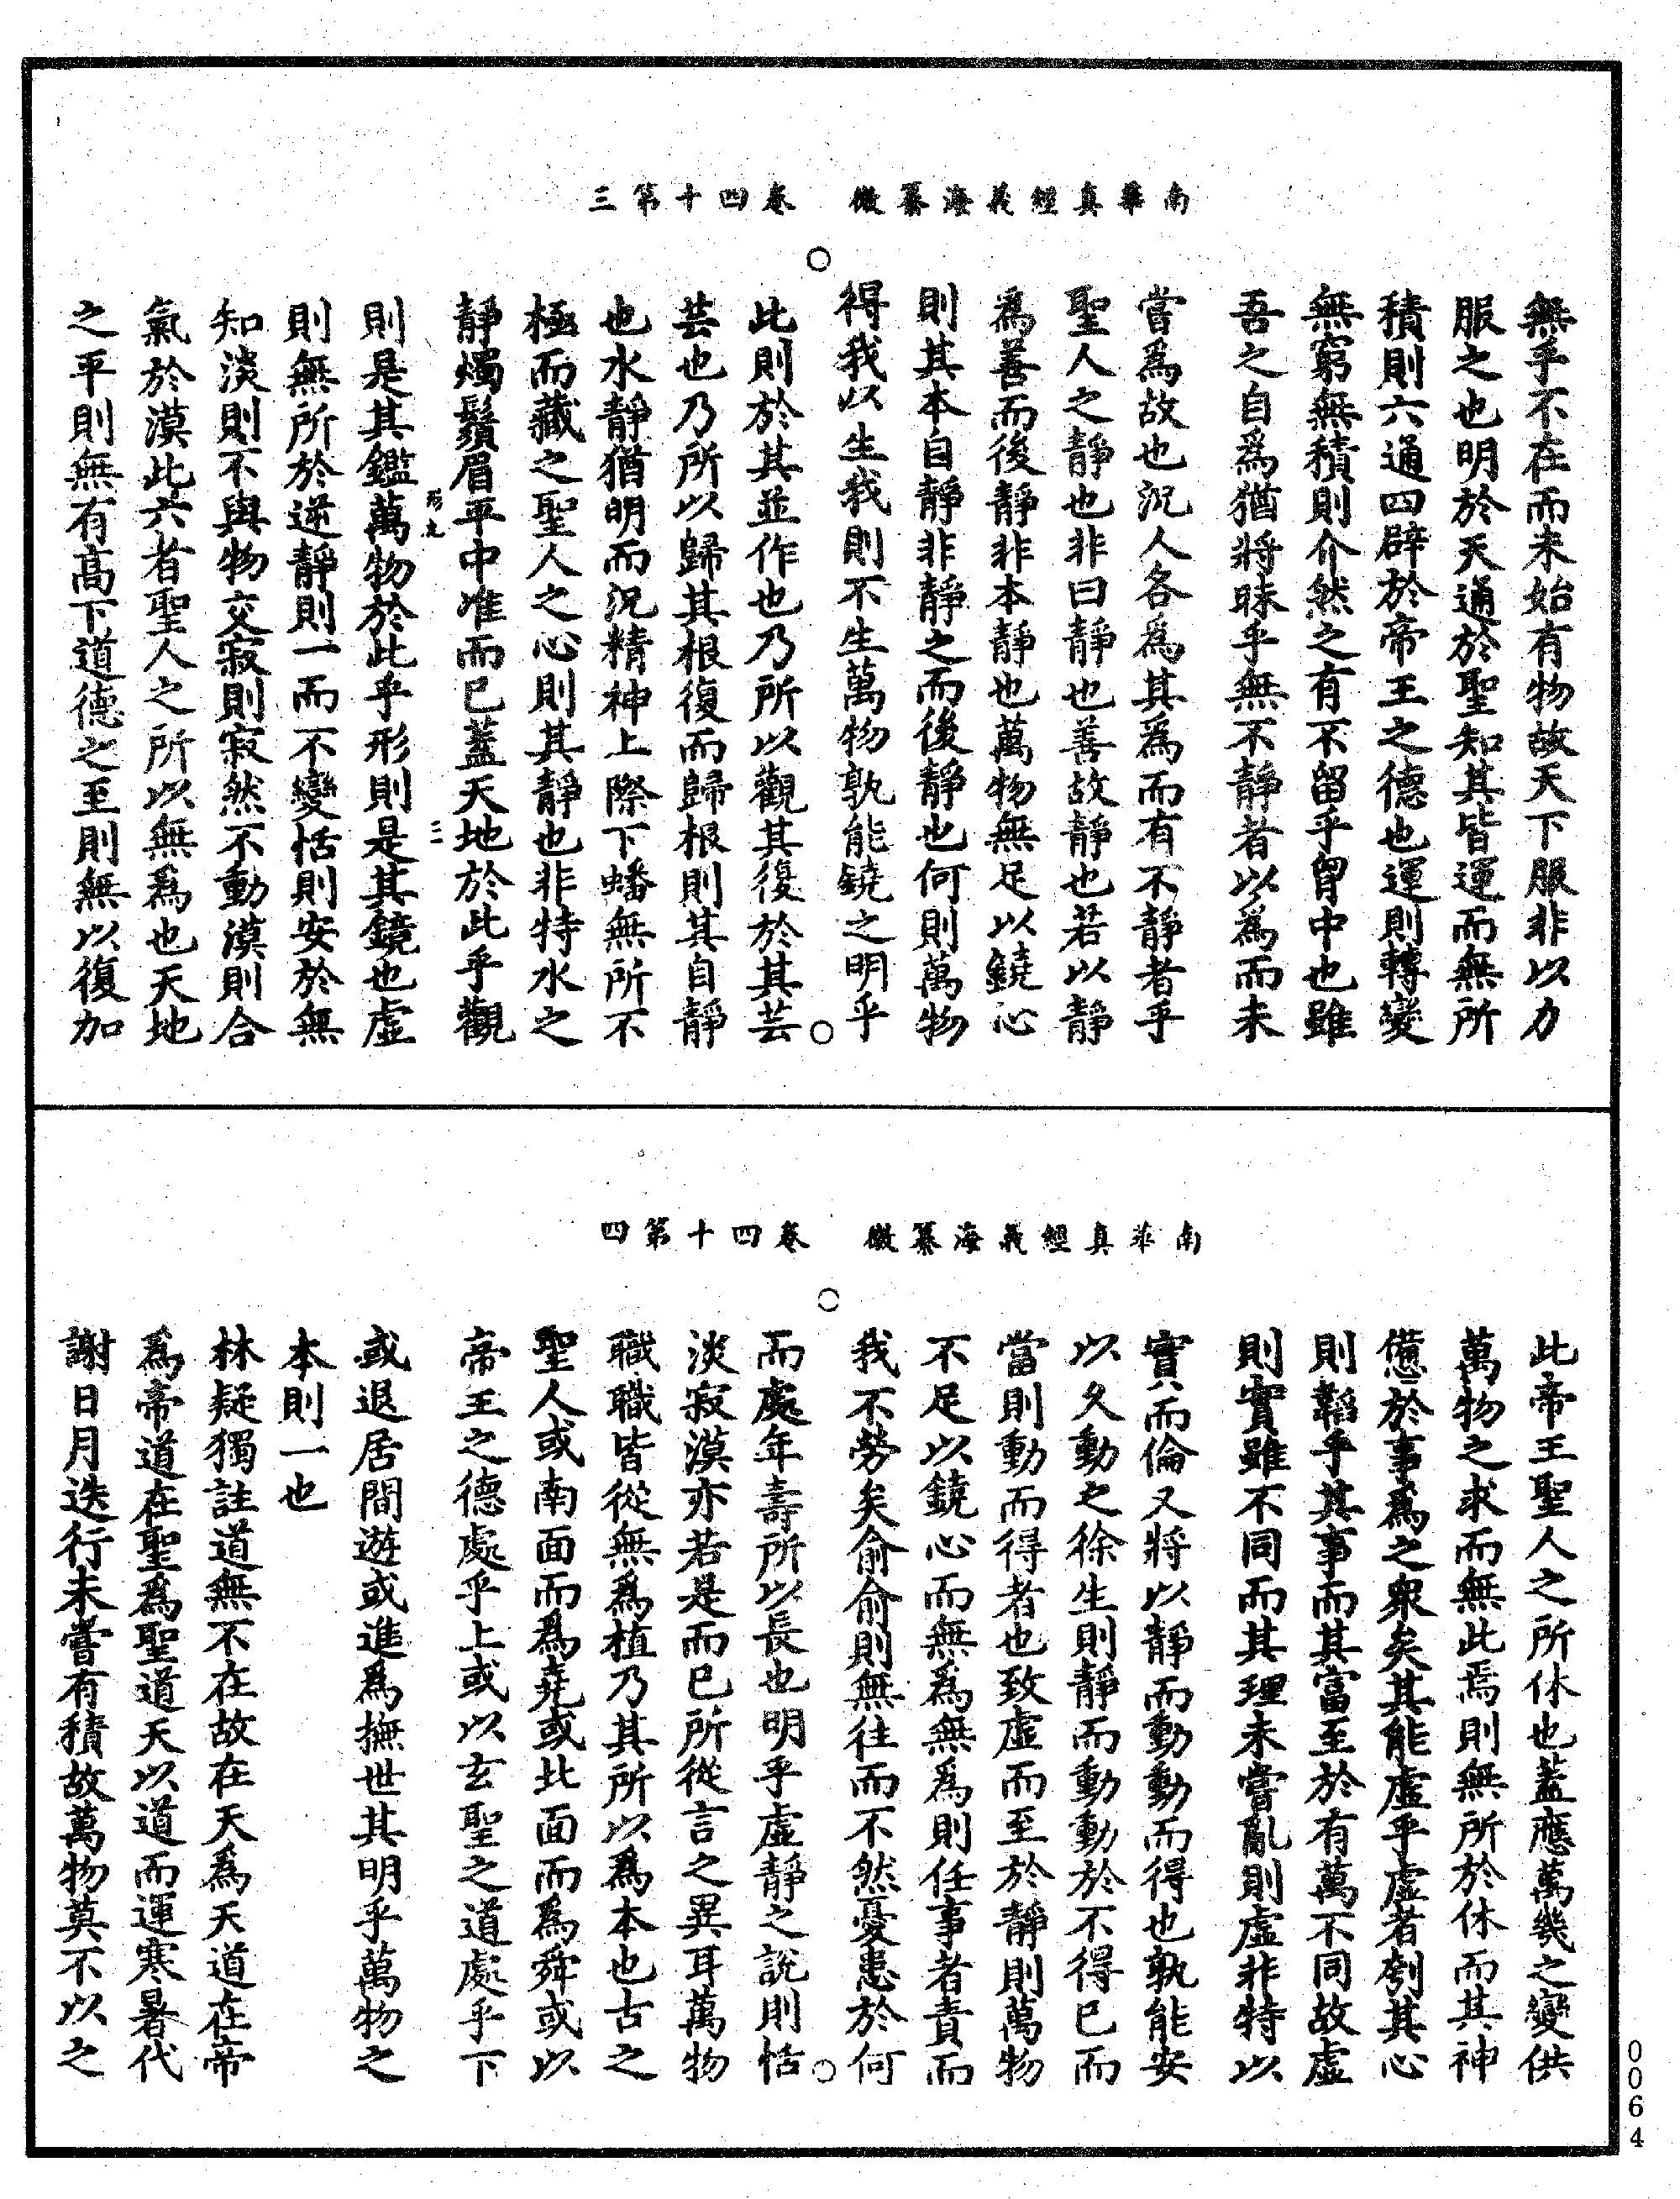 南華真經義海纂微　卷四十第三
無乎不在而未始有物故天下服非以力
服之也明於天通於聖知其皆運而無所
積則六通四辟於帝王之德也運則轉變
無窮無積則介然之有不留乎胷中也雖
吾之自爲猶將昧乎無不靜者以爲而未
嘗爲故也況人各爲其爲而有不靜者乎
聖人之靜也非曰靜也善故靜也若以靜
爲善而後靜非本靜也萬物無足以鐃心
則其本自靜非靜之而後靜也何則萬物
得我以生我則不生萬物孰能鐃之明乎
此則於其並作也乃所以觀其復於其芸
芸也乃所以歸其根復而歸根則其自靜
也水靜猶明而況精神上際下蟠無所不
極而藏之聖人之心則其靜也非特水之
靜燭鬚眉平中准而已蓋天地於此乎觀
則是其鑑萬物於此乎形則是其鏡也虛
則無所於逆靜則一而不變恬則安於無
知淡則不與物交寂則寂然不動漠則合
氣於漠此六者聖人之所以無爲也天地
之平則無有高下道德之至則無以復加
南華真經義海纂微　卷四十第四
此帝王聖人之所休也蓋應萬幾之變供
萬物之求而無此焉則無所於休而其神
憊於事爲之衆矣其能虛乎虛者刳其心
則韜乎其事而其富至於有萬不同故虛
則實雖不同而其理未嘗亂則虛非特以
實八而倫又將以靜而動動而得也孰能安
以久動之徐生則靜而動動於不得已而
當則動而得者也致虛而至於靜則萬物
不足以鐃心而無爲無爲則任事者責而
我不勞矣俞俞則無往而不然憂患於何
而處年壽所以長也明乎虛靜之說則恬
淡寂漠亦若是而已所從言之異耳萬物
職職皆從無爲植乃其所以爲本也古之
聖人或南面而爲堯或北面而爲舜或以
帝王之德處乎上或以玄聖之道處乎下
或退居閒遊或進爲撫世其明乎萬物之
本則一也
林疑獨註道無不在故在天爲天道在帝
爲帝道在聖爲聖道天以道而運寒暑代
謝日月迭行未嘗有積故萬物莫不以之
0064